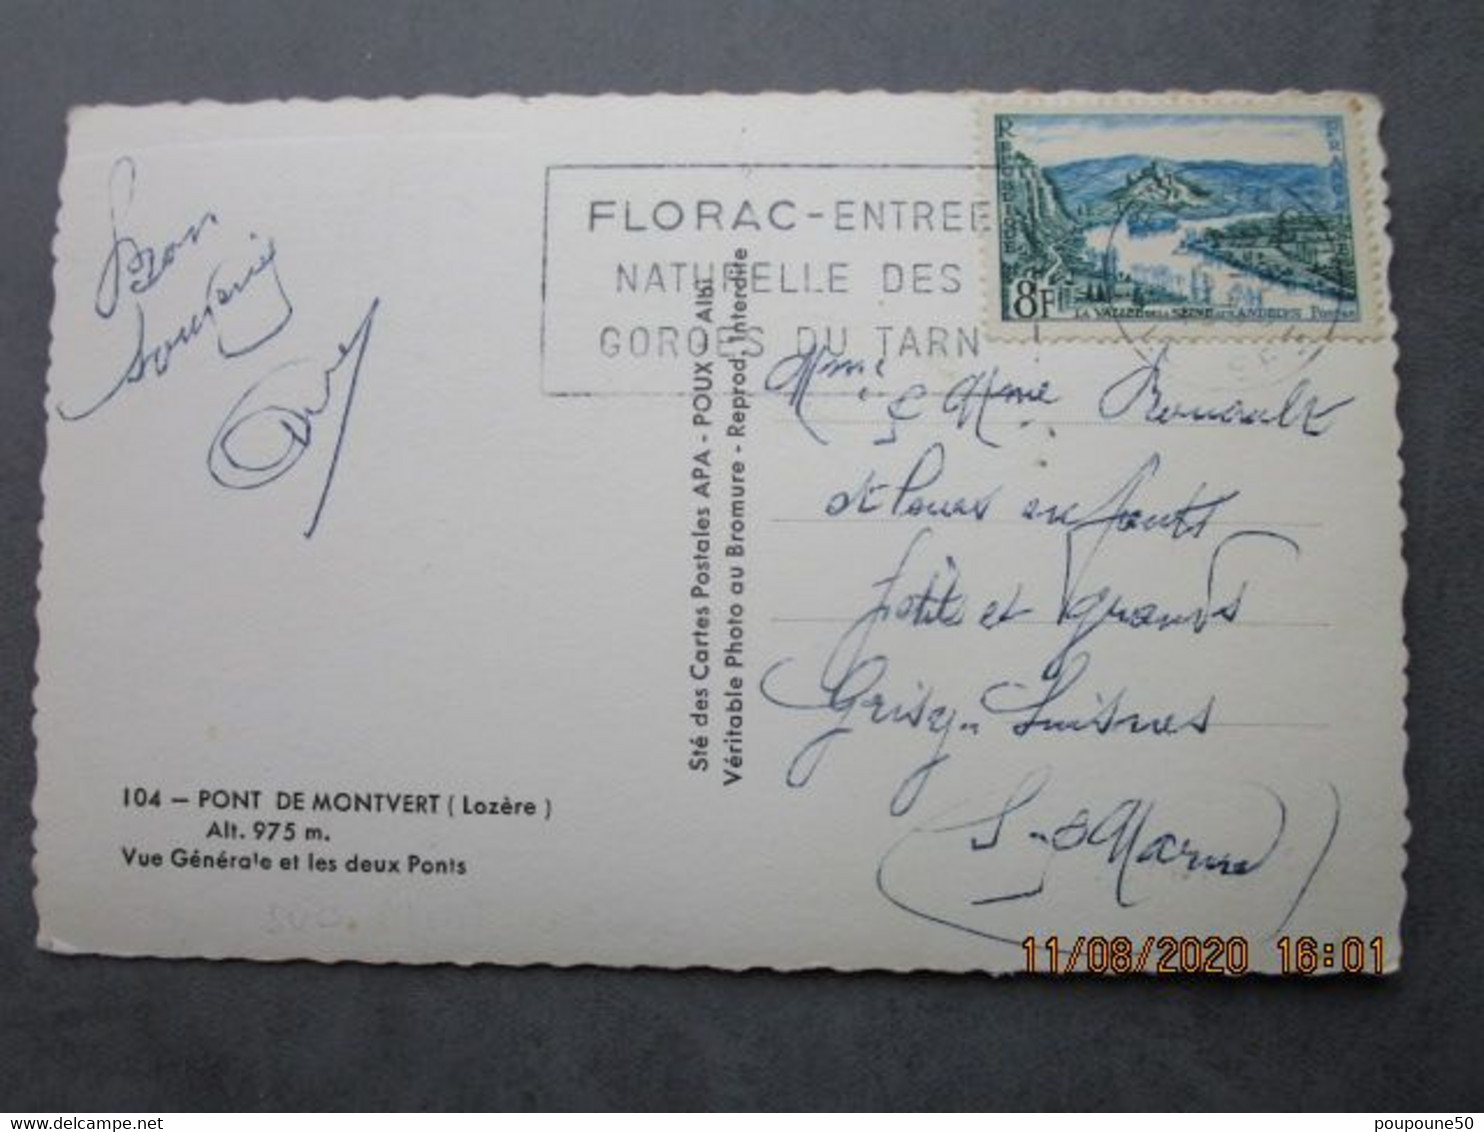 Bon
souvenir
FLORAC-ENTREE
NATURELLE DES
GORGES DU TARN
REPUBLIQUE FRANCAISE
8F
LA VALLEE DE LA SEINE AUX ANDELYS POSTES
Sté des Cartes Postales APA - POUX - Albi
Véritable Photo au Bromure - Reprod. Interdite
& Mme Rouault
et leurs enfants
petits et grands
Grisy-Suisnes
(S-&-Marne)
104 — PONT DE MONTVERT (Lozère)
Alt. 975 m.
Vue Générale et les deux Ponts
11/08/2020 16:01
poupoune50